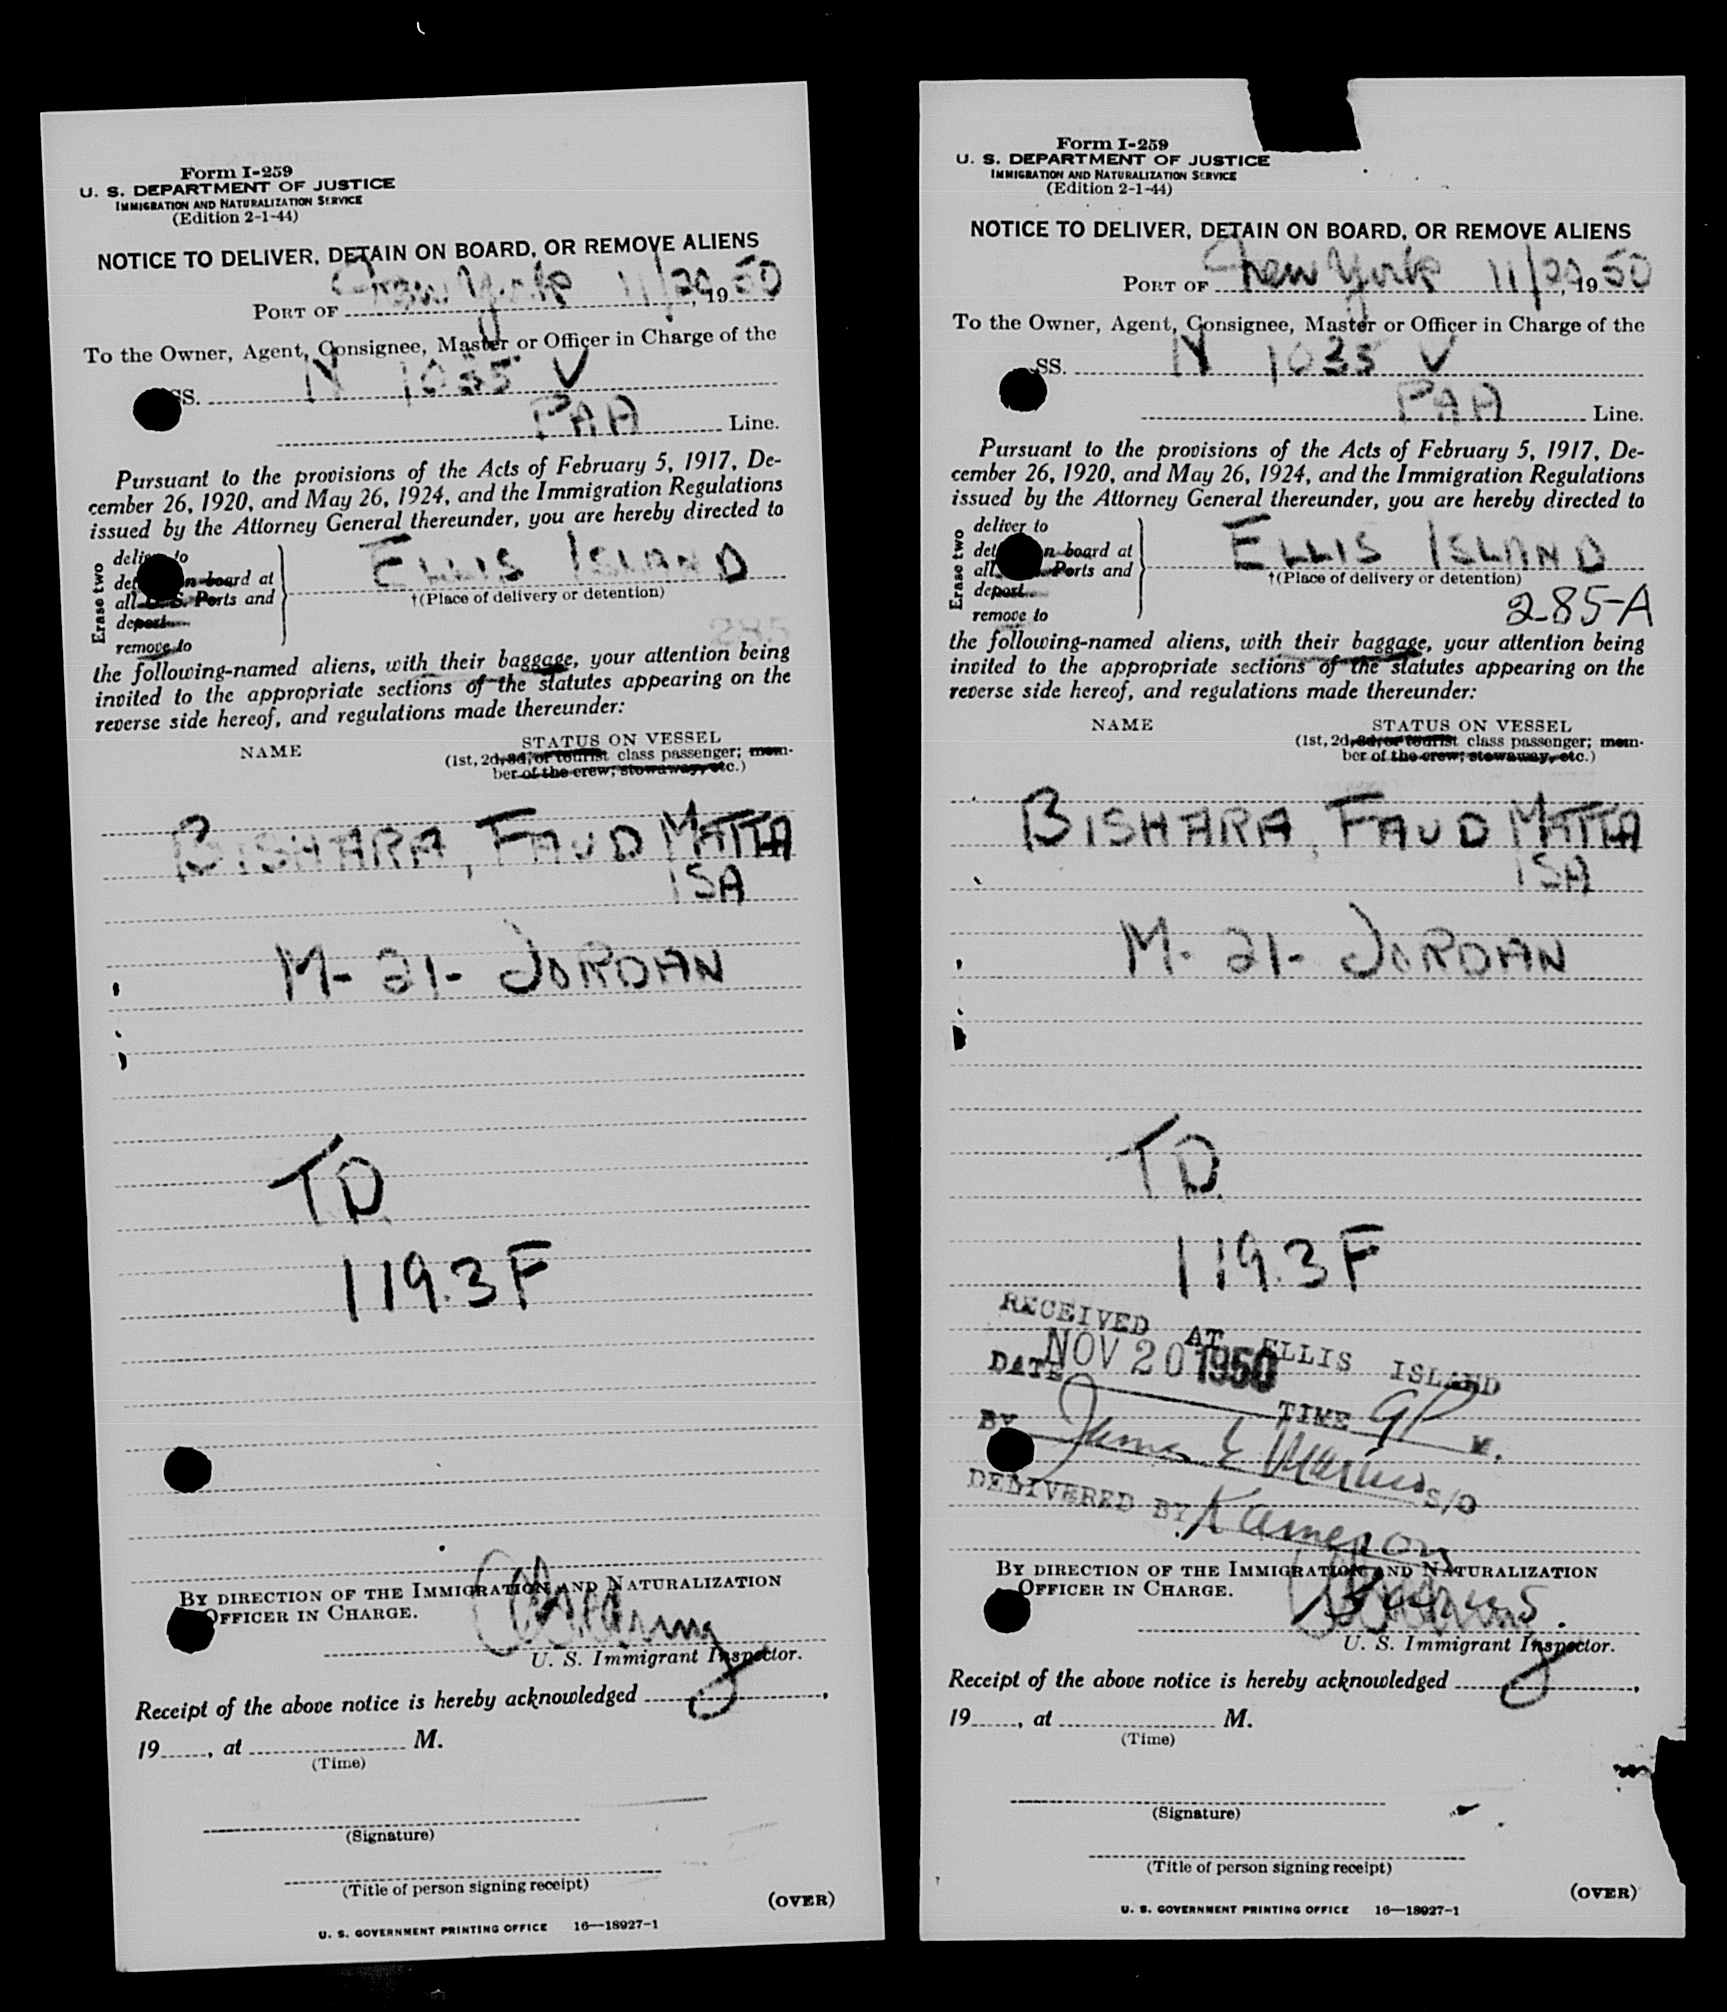 Form I-259
U. S. DEPARTMENT OF JUSTICE
IMMIGRATION AND NATURALIZATION SERVICE
(Edition 2-1-44)
NOTICE TO DELIVER, DETAIN ON BOARD, OR REMOVE ALIENS
PORT OF New York 11/20, 1950
To the Owner, Agent, Consignee, Master or Officer in Charge of the
SS. N 1035 V
PAA Line.
Pursuant to the provisions of the Acts of February 5, 1917, De-
cember 26, 1920, and May 26, 1924, and the Immigration Regulations
issued by the Attorney General thereunder, you are hereby directed to
Erase two
deliver to
det n board at
all U. S. Ports and
deport
remove to
ELLIS ISLAND
†(Place of delivery or detention)
285
the following-named aliens, with their baggage, your attention being
invited to the appropriate sections of the statutes appearing on the
reverse side hereof, and regulations made thereunder:
NAME
STATUS ON VESSEL
(1st, 2d, 3d, or tourist class passenger; mem-
ber of the crew; stowaway, etc.)
BISHARA, FAUD MATTA
ISA
M- 21- JORDAN
TD
119.3F
BY DIRECTION OF THE IMMIGRATION AND NATURALIZATION
OFFICER IN CHARGE.
U. S. Immigrant Inspector.
Receipt of the above notice is hereby acknowledged ,
19 , at M.
(Time)
(Signature)
(Title of person signing receipt)
(OVER)
U. S. GOVERNMENT PRINTING OFFICE 16—18927-1
Form I-259
U. S. DEPARTMENT OF JUSTICE
IMMIGRATION AND NATURALIZATION SERVICE
(Edition 2-1-44)
NOTICE TO DELIVER, DETAIN ON BOARD, OR REMOVE ALIENS
PORT OF New York 11/20, 1950
To the Owner, Agent, Consignee, Master or Officer in Charge of the
SS. N 1035 V
PAA Line.
Pursuant to the provisions of the Acts of February 5, 1917, De-
cember 26, 1920, and May 26, 1924, and the Immigration Regulations
issued by the Attorney General thereunder, you are hereby directed to
Erase two
deliver to
det n board at
all Ports and
deport
remove to
ELLIS ISLAND
†(Place of delivery or detention)
285-A
the following-named aliens, with their baggage, your attention being
invited to the appropriate sections of the statutes appearing on the
reverse side hereof, and regulations made thereunder:
NAME
STATUS ON VESSEL
(1st, 2d, 3d, or tourist class passenger; mem-
ber of the crew; stowaway, etc.)
BISHARA, FAUD MATTA
ISA
M- 21- JORDAN
TD
119.3F
RECEIVED AT ELLIS ISLAND
DATE NOV 20 1950 TIME 9P M.
BY James E S/O
DELIVERED BY Kameron
BY DIRECTION OF THE IMMIGRATION AND NATURALIZATION
OFFICER IN CHARGE.
U. S. Immigrant Inspector.
Receipt of the above notice is hereby acknowledged ,
19 , at M.
(Time)
(Signature)
(Title of person signing receipt)
(OVER)
U. S. GOVERNMENT PRINTING OFFICE 16—18927-1